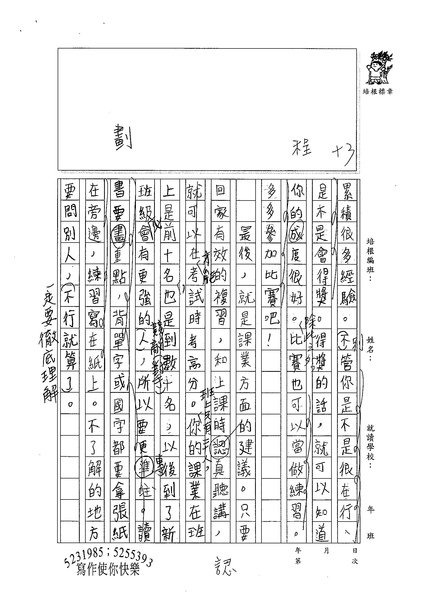 培根標章
劃
程 +3
培根編班：
姓名：
就讀學校：
年 班
日次
月
年第
累積很多經驗。不管你是不是很在行、
是不是會得獎。得獎的話，就可以知道
你的成度很好。比賽也可以當做練習。
多多參加比賽吧！
最後，就是課業方面的建議。只要
回家有效的複習，和上課時認真聽講，
就可以在考試時考高分。你的課業在班
上是前十名也是到數十名，以後到了新
班級會有更強的人，所以要更
書要畫重點，背單字或國字都要拿張紙
在旁邊，練習寫在紙上。不了解的地方
要問別人，不行就算了。
一定要徹底理解
認
5231985；5255393
寫作使你快樂